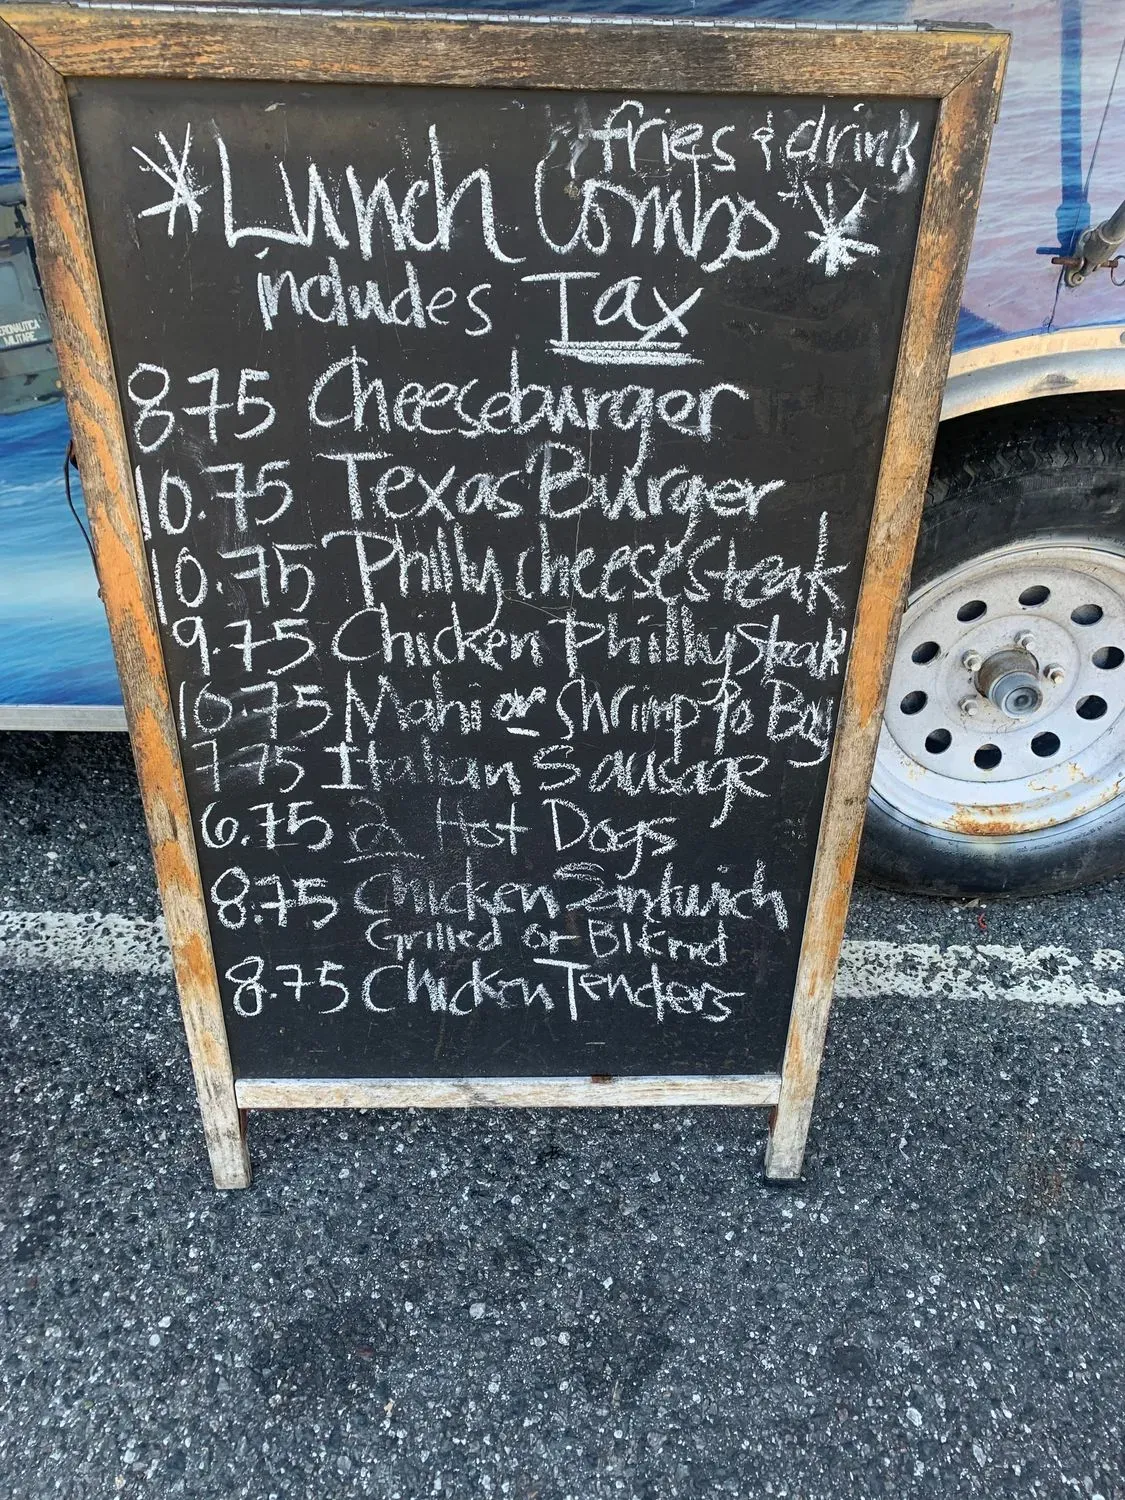 fries & drink
*Lunch Combs*
includes Tax
8.75 Cheeseburger
10.75 Texas Burger
10.75 Philly cheesesteak
9.75 Chicken Philly Steak
10.75 Mahi or Shrimp Po Boy
7.75 Italian Sausage
6.75 2 Hot Dogs
8.75 Chicken Sandwich
Grilled or Blknd
8.75 Chicken Tenders
AERONAUTICA
MILITARE